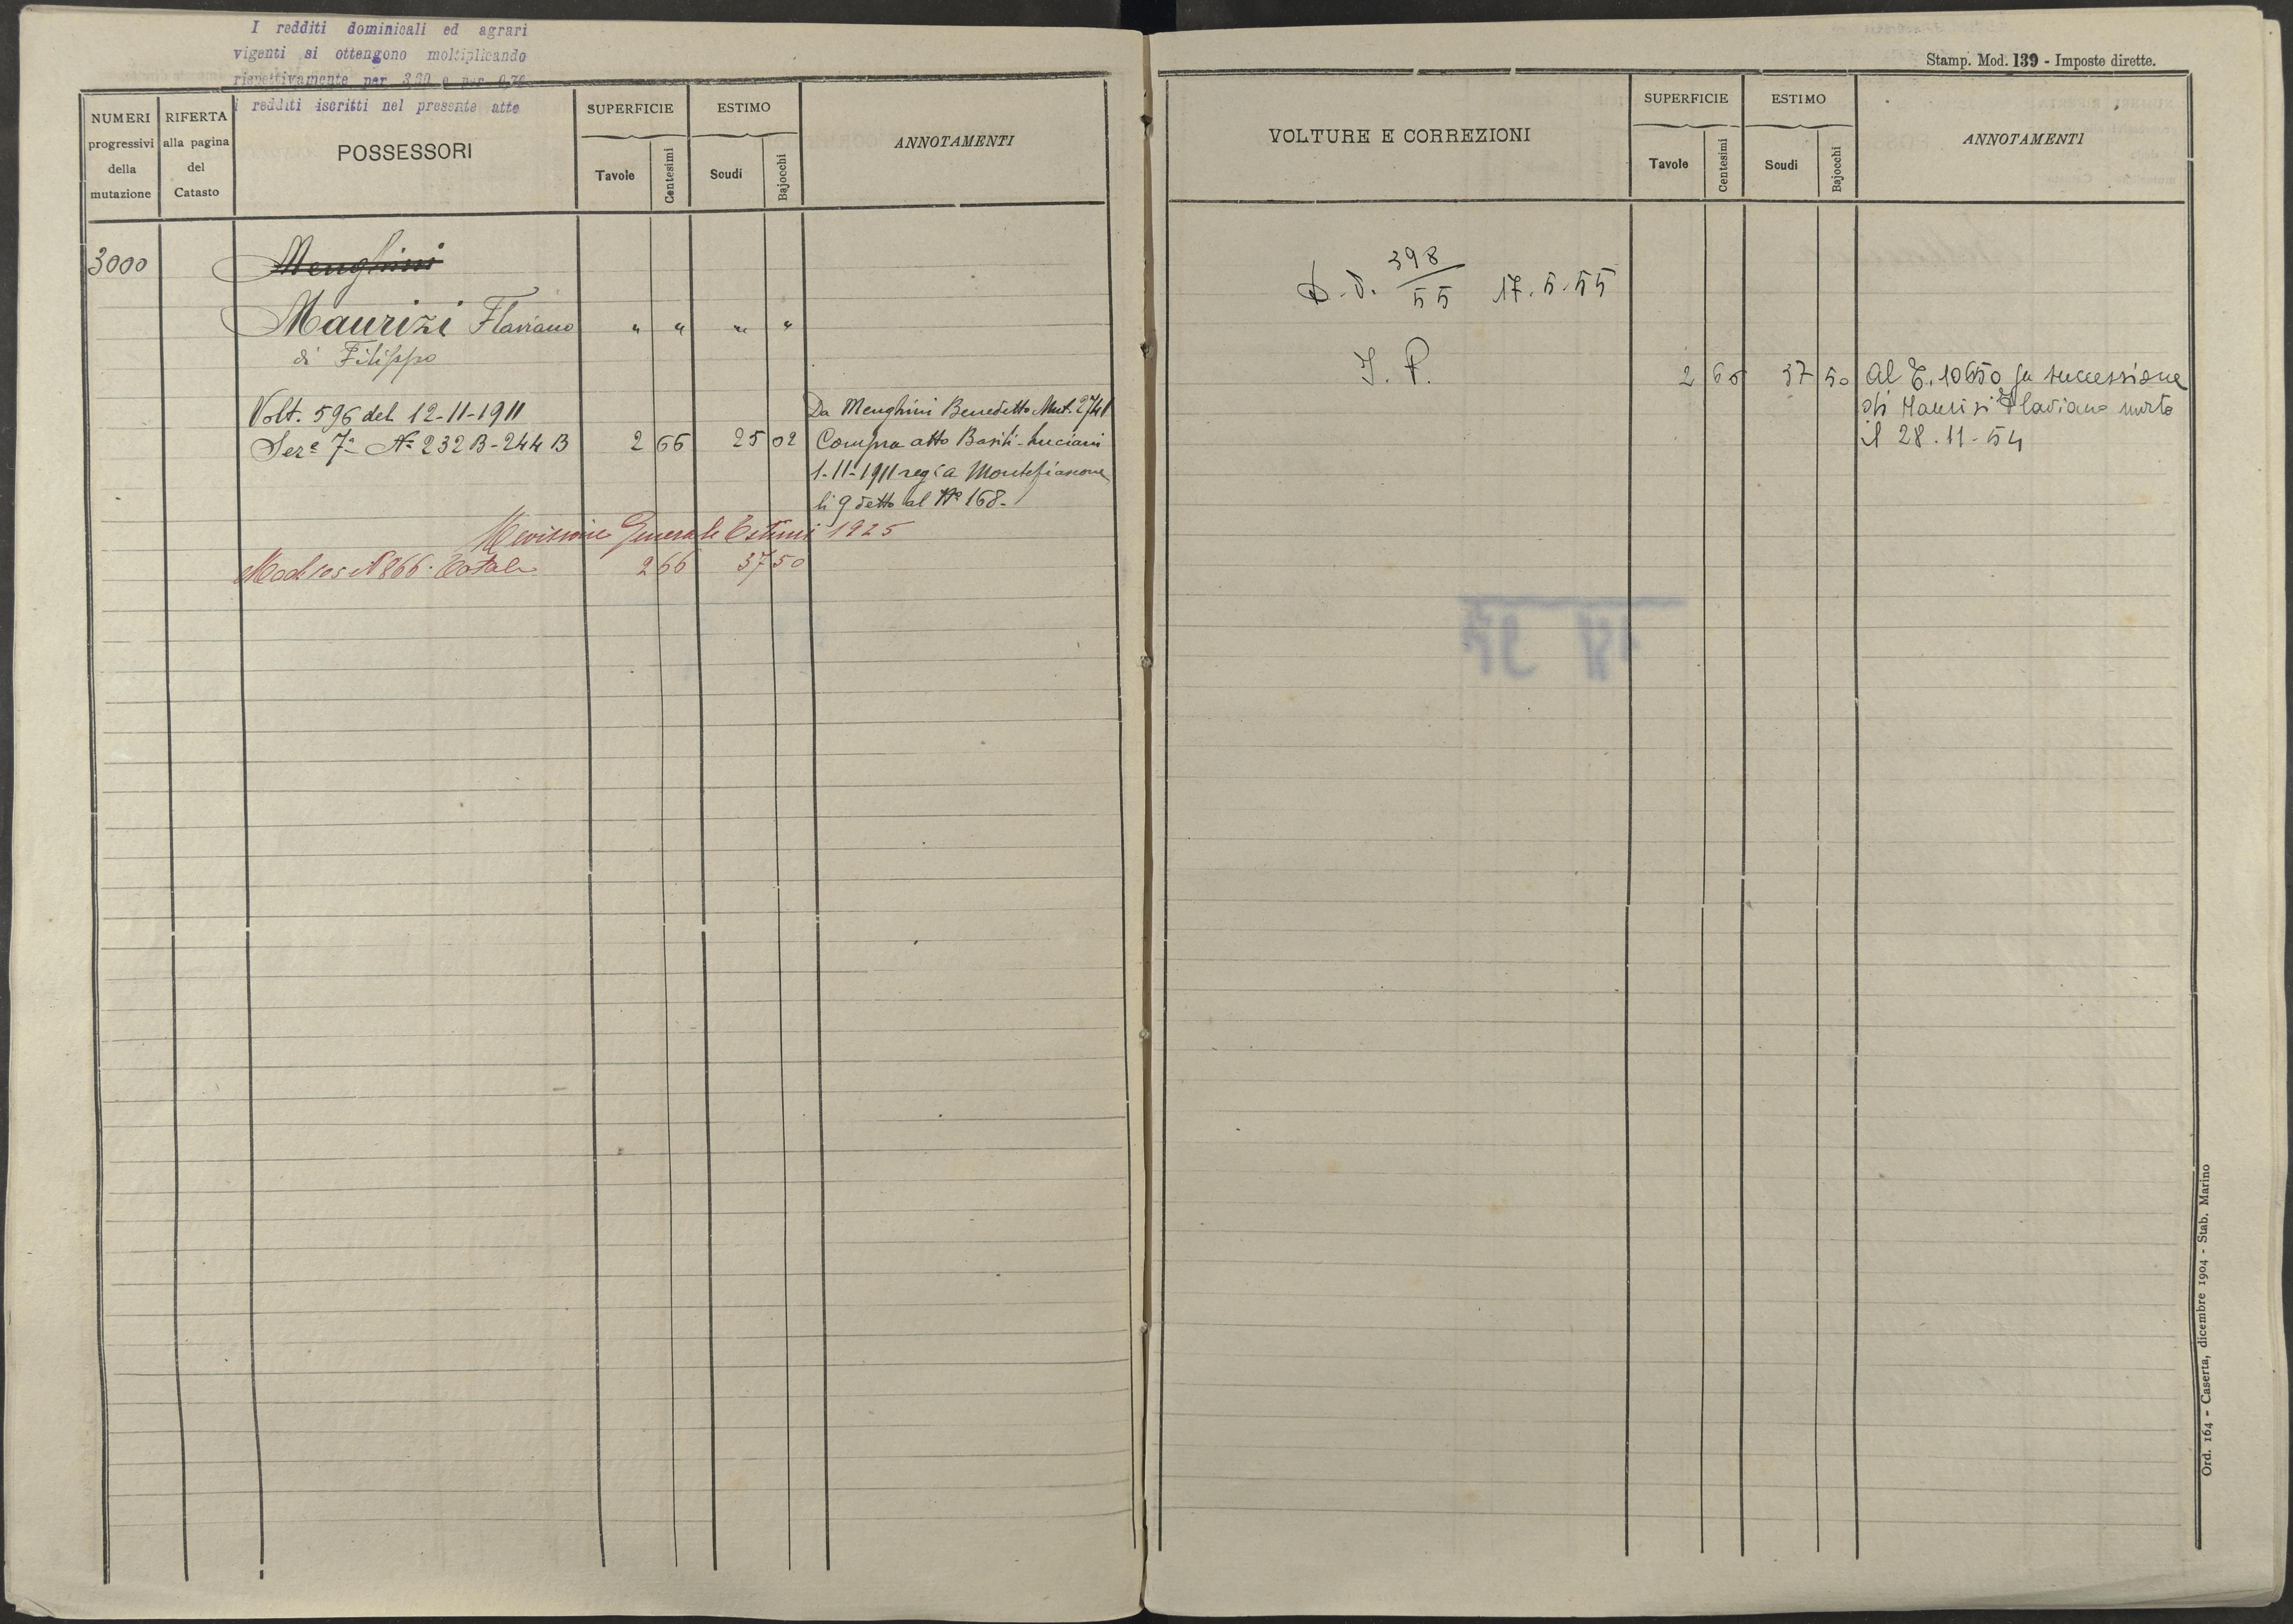 I redditi dominicali ed agrari
vigenti si ottengono moltiplicando
rispettivamente per 3,60 e per
i redditi iscritti nel presente atto
NUMERI progressivi della mutazione
RIFERTA alla pagina del Catasto
POSSESSORI
SUPERFICIE
Tavole
Centesimi
ESTIMO
Scudi
Bajocchi
ANNOTAMENTI
3000
Menghini
Maurizi Flaviano " " " "
di Filippo
Volt. 596 del 12-11-1911
Ser.e 7a No 232 B - 244 B 2 66 25 02
Da Menghini Benedetto Mut. 2741
Compra atto Basili-Luciani
1-11-1911 reg. a Montefiascone
li 9 detto al No 168-
Revisione Generale Estimi 1925
Totale 2 66 37 50
Stamp. Mod. 139 - Imposte dirette.
VOLTURE E CORREZIONI
SUPERFICIE
Tavole
Centesimi
ESTIMO
Scudi
Bajocchi
ANNOTAMENTI
D.D. 398/55 17.5.55
2 66 37 50
Al 10650 successione
di Maurizi Flaviano morto
il 28.11.54
Ord. 164 - Caserta, dicembre 1904 - Stab. Marino